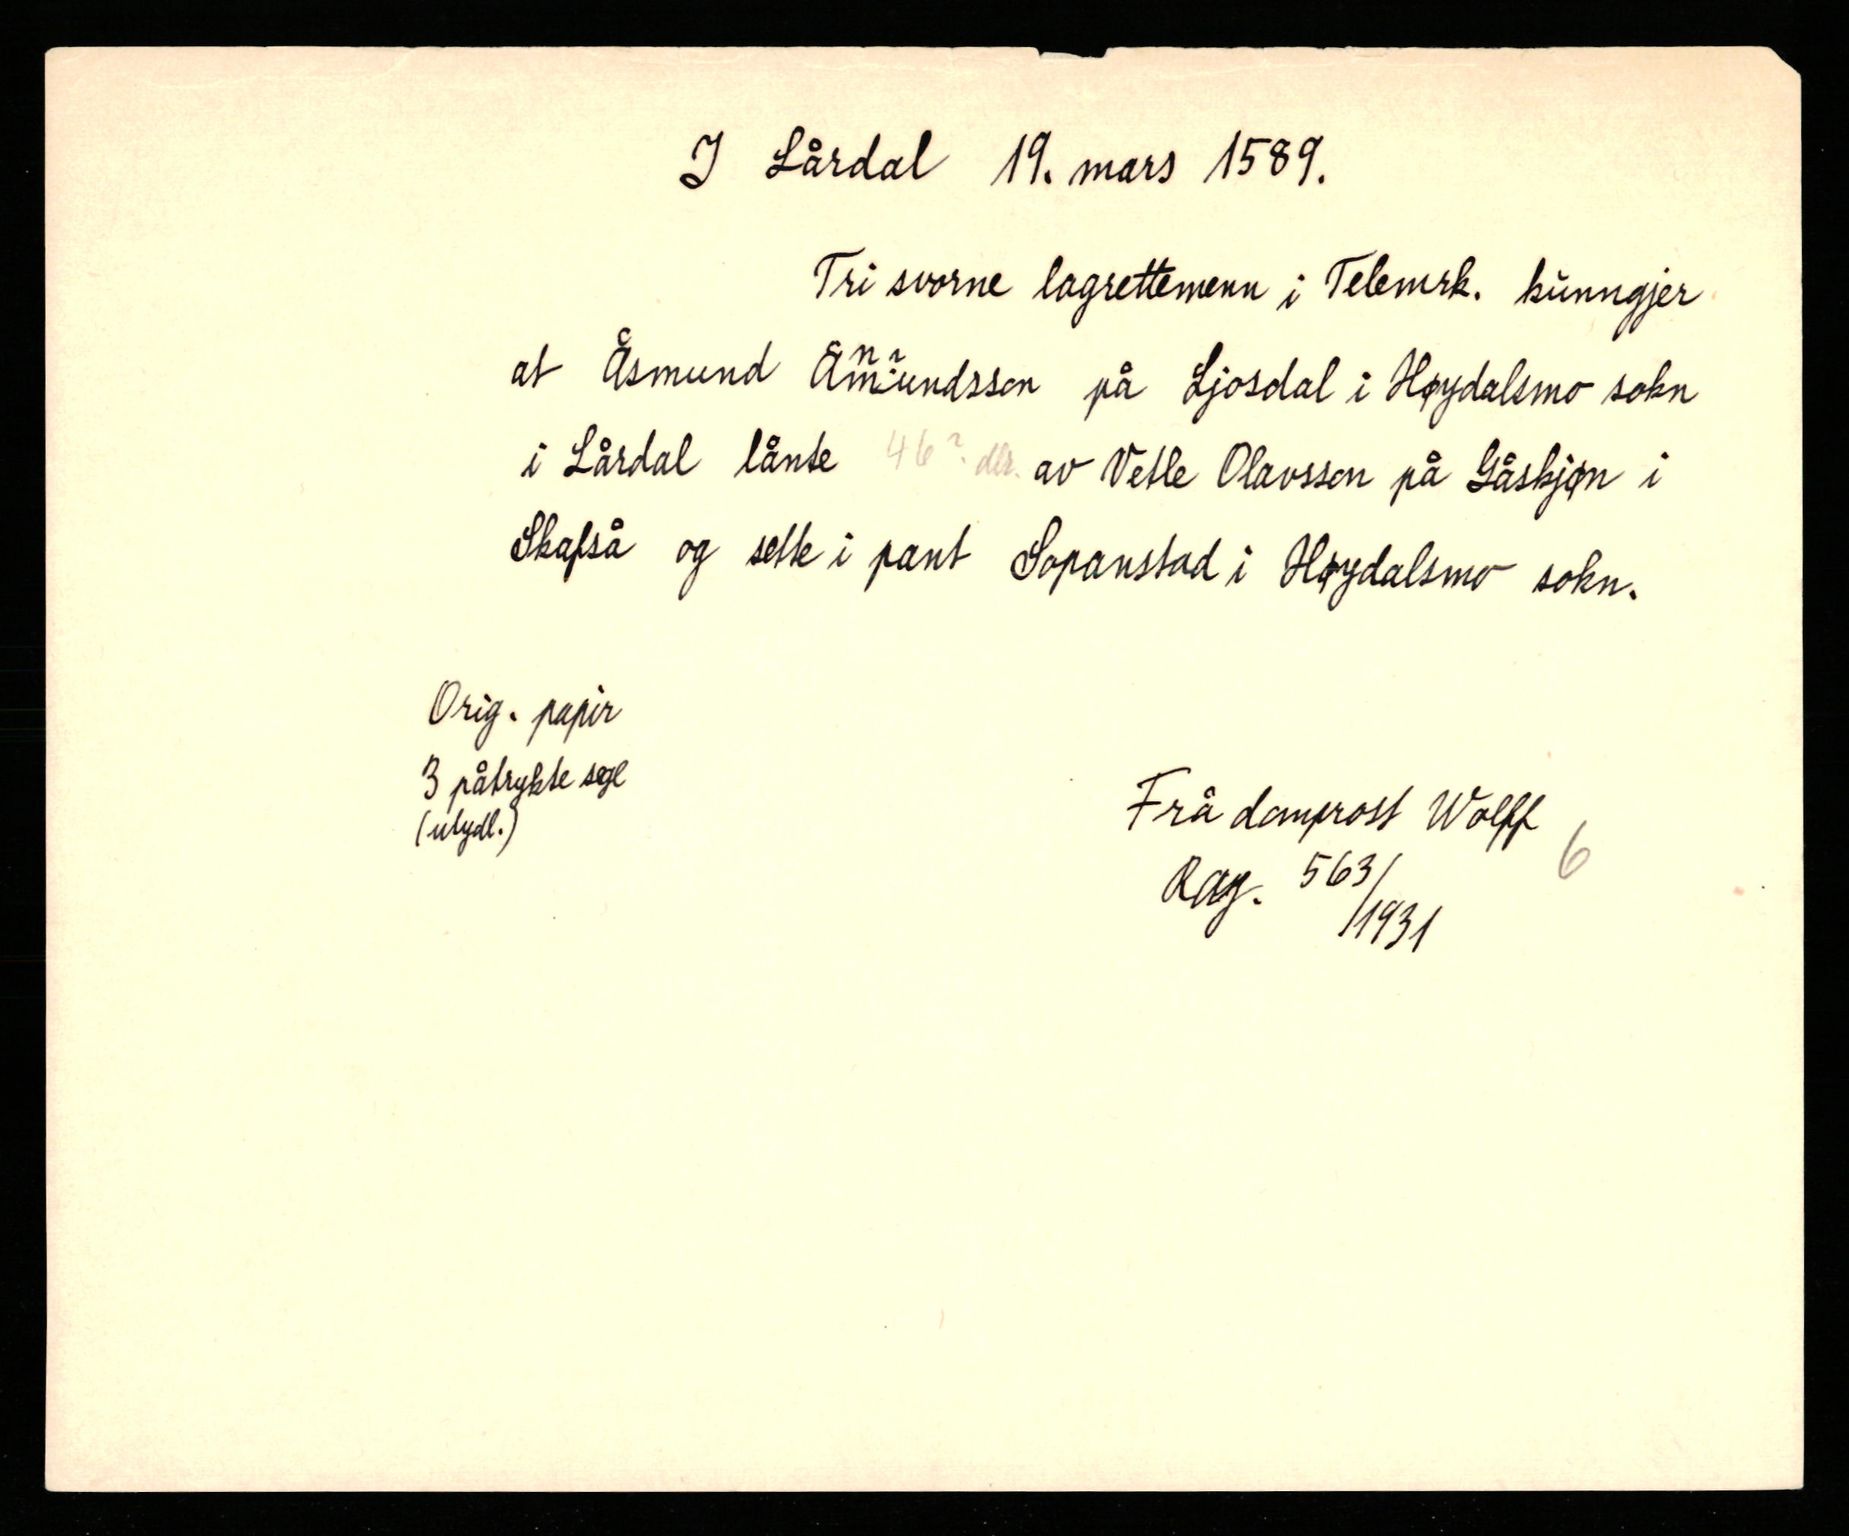 I Lårdal 19. mars 1589.
Tri svorne lagrettemenn i Telemrk. kunngjer
at Åsmund Åmundsson på Ljosdal i Høydalsmo sokn
n ?
i Lårdal lånte 46? dlr. av Vetle Olavsson på Gåskjøn i
Skafså og sette i pant Sopanstad i Høydalsmo sokn.
Orig. papir
3 påtrykte segl
(utydl.)
Frå domprost Wolff
6
563/1931